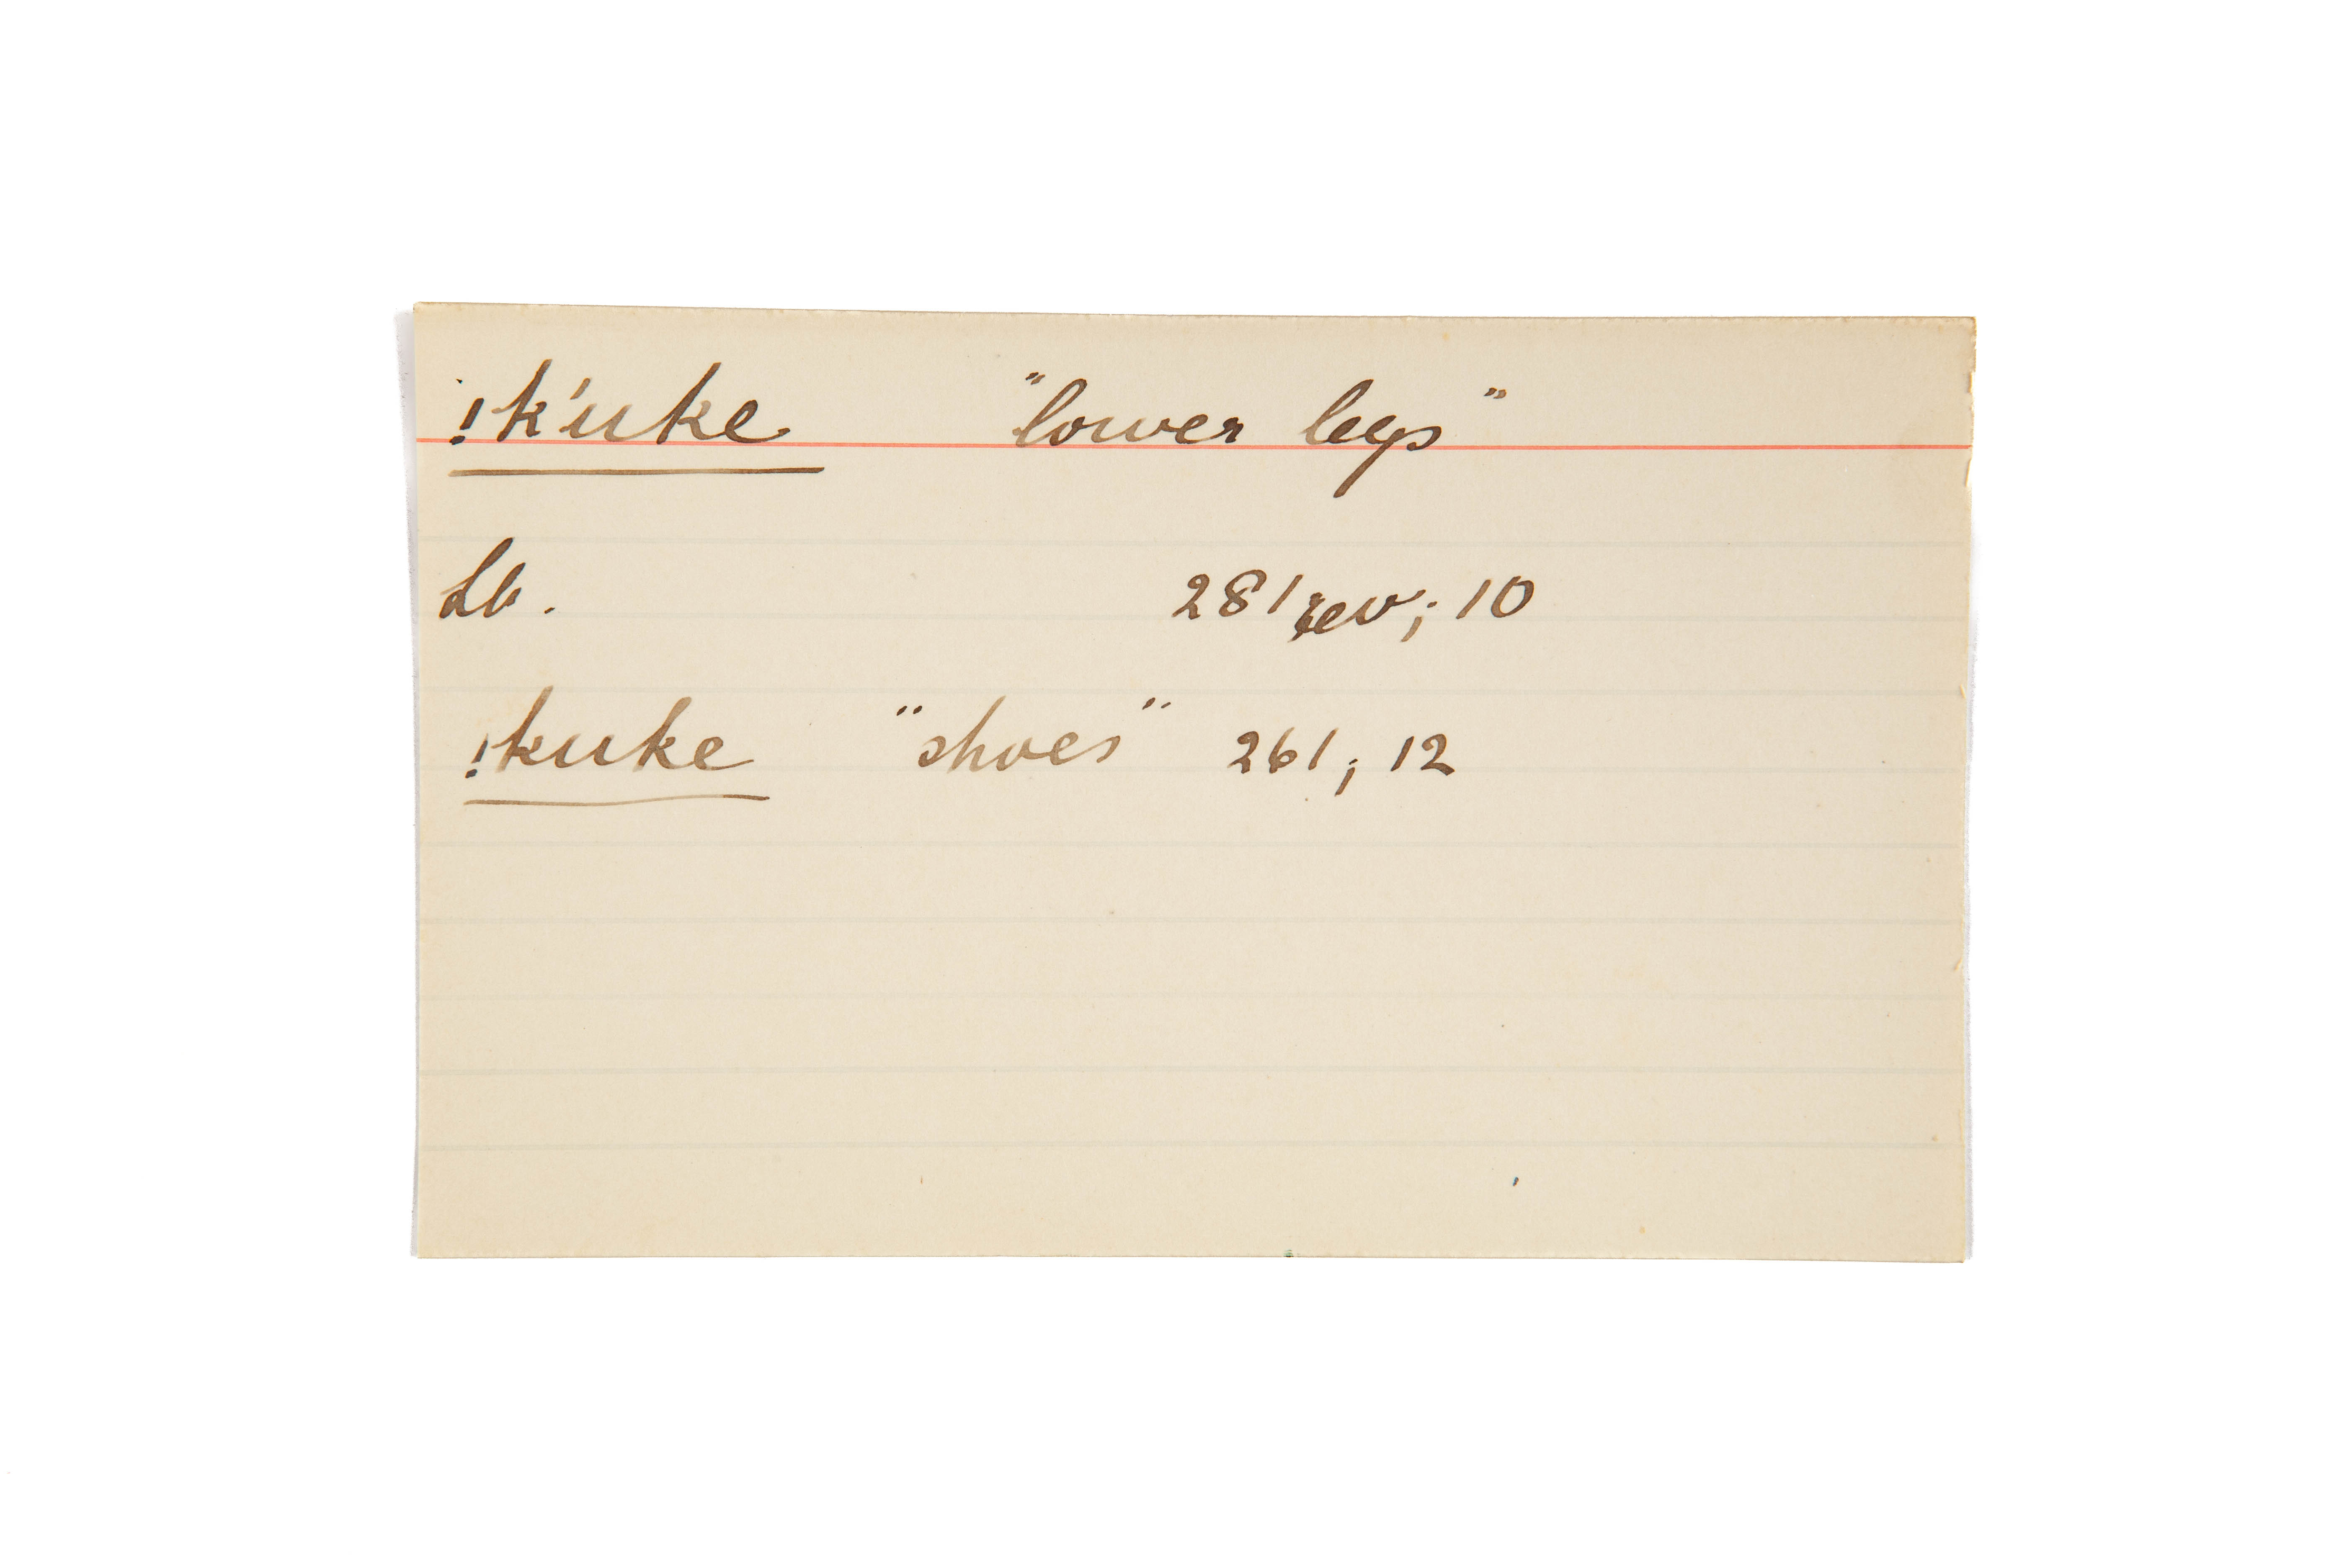 !k'uke "lower legs"
Lb. 281 rev; 10
!kuke "shoes" 261; 12